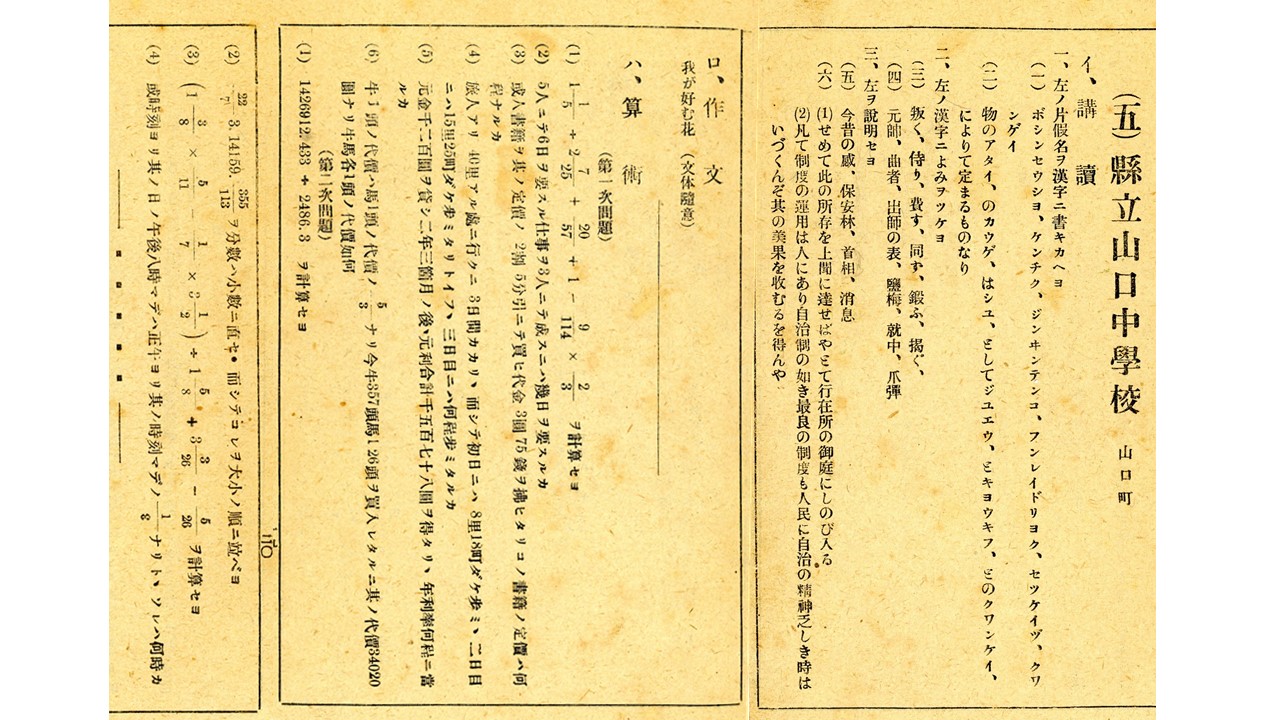 (五)縣立山口中學校 山口町
イ、講讀
一、左ノ片假名ヲ漢字ニ書キカヘヨ
(一) ボシンセウシヨ、ケンチク、ジンヰンテンコ、フンレイドリヨク、セツケイヅ、クワ
ンゲイ
(二) 物のアタイ、のカウゲ、はシユ、としてジユエウ、とキヨウキフ、とのクワンケイ、
によりて定まるものなり
二、左ノ漢字ニよみヲツケヨ
(三) 叛く、侍り、費す、同す、鍛ふ、揭ぐ、
(四) 元帥、曲者、出師の表、鹽梅、就中、爪彈
三、左ヲ説明セヨ
(五) 今昔の感、保安林、首相、消息
(六) (1)せめて此の所存を上聞に達せばやとて行在所の御庭にしのび入る
(2)凡て制度の運用は人にあり自治制の如き最良の制度も人民に自治の精神乏しき時は
いづくんぞ其の美果を收むるを得んや
ロ、作文
我が好む花 (文体隨意)
ハ、算術
(第一次問題)
(1) 1 1/5 ÷ 2 7/25 + 20/57 + 1 − 9/114 × 2/3 ヲ計算セヨ
(2) 5人ニテ6日ヲ要スル仕事ヲ3人ニテ成スニハ幾日ヲ要スルカ
(3) 或人書籍ヲ其ノ定價ノ2割5分引ニテ買ヒ代金3圓75錢ヲ拂ヒタリコノ書籍ノ定價ハ何
程ナルカ
(4) 旅人アリ40里アル處ニ行クニ3日間カカリ、而シテ初日ニハ8里18町ダケ歩ミ、二日目
ニハ15里25町ダケ歩ミタリトイフ、三日目ニハ何程歩ミタルカ
(5) 元金千二百圓ヲ貸シ二年三箇月ノ後、元利合計千五百七十八圓ヲ得タリ、年利率何程ニ當
ルカ
(6) 牛1頭ノ代價ハ馬1頭ノ代價ノ 5/3 ナリ今牛357頭馬126頭ヲ買入レタルニ其ノ代價34020
圓ナリ牛馬各1頭ノ代價如何
(第二次問題)
(1) 1426912.433 ÷ 2486.3 ヲ計算セヨ
(2) 22/7 3.14159. 355/113 ヲ分數ハ小數ニ直セ 而シテコレヲ大小ノ順ニ並ベヨ
(3) (1 3/8 × 5/11 − 1/7 × 3 1/2) ÷ 1 5/8 + 3 3/26 − 5/26 ヲ計算セヨ
(4) 或時刻ヨリ其ノ日ノ午後八時マデハ正午ヨリ其ノ時刻マデノ 1/3 ナリト、ソレハ何時カ